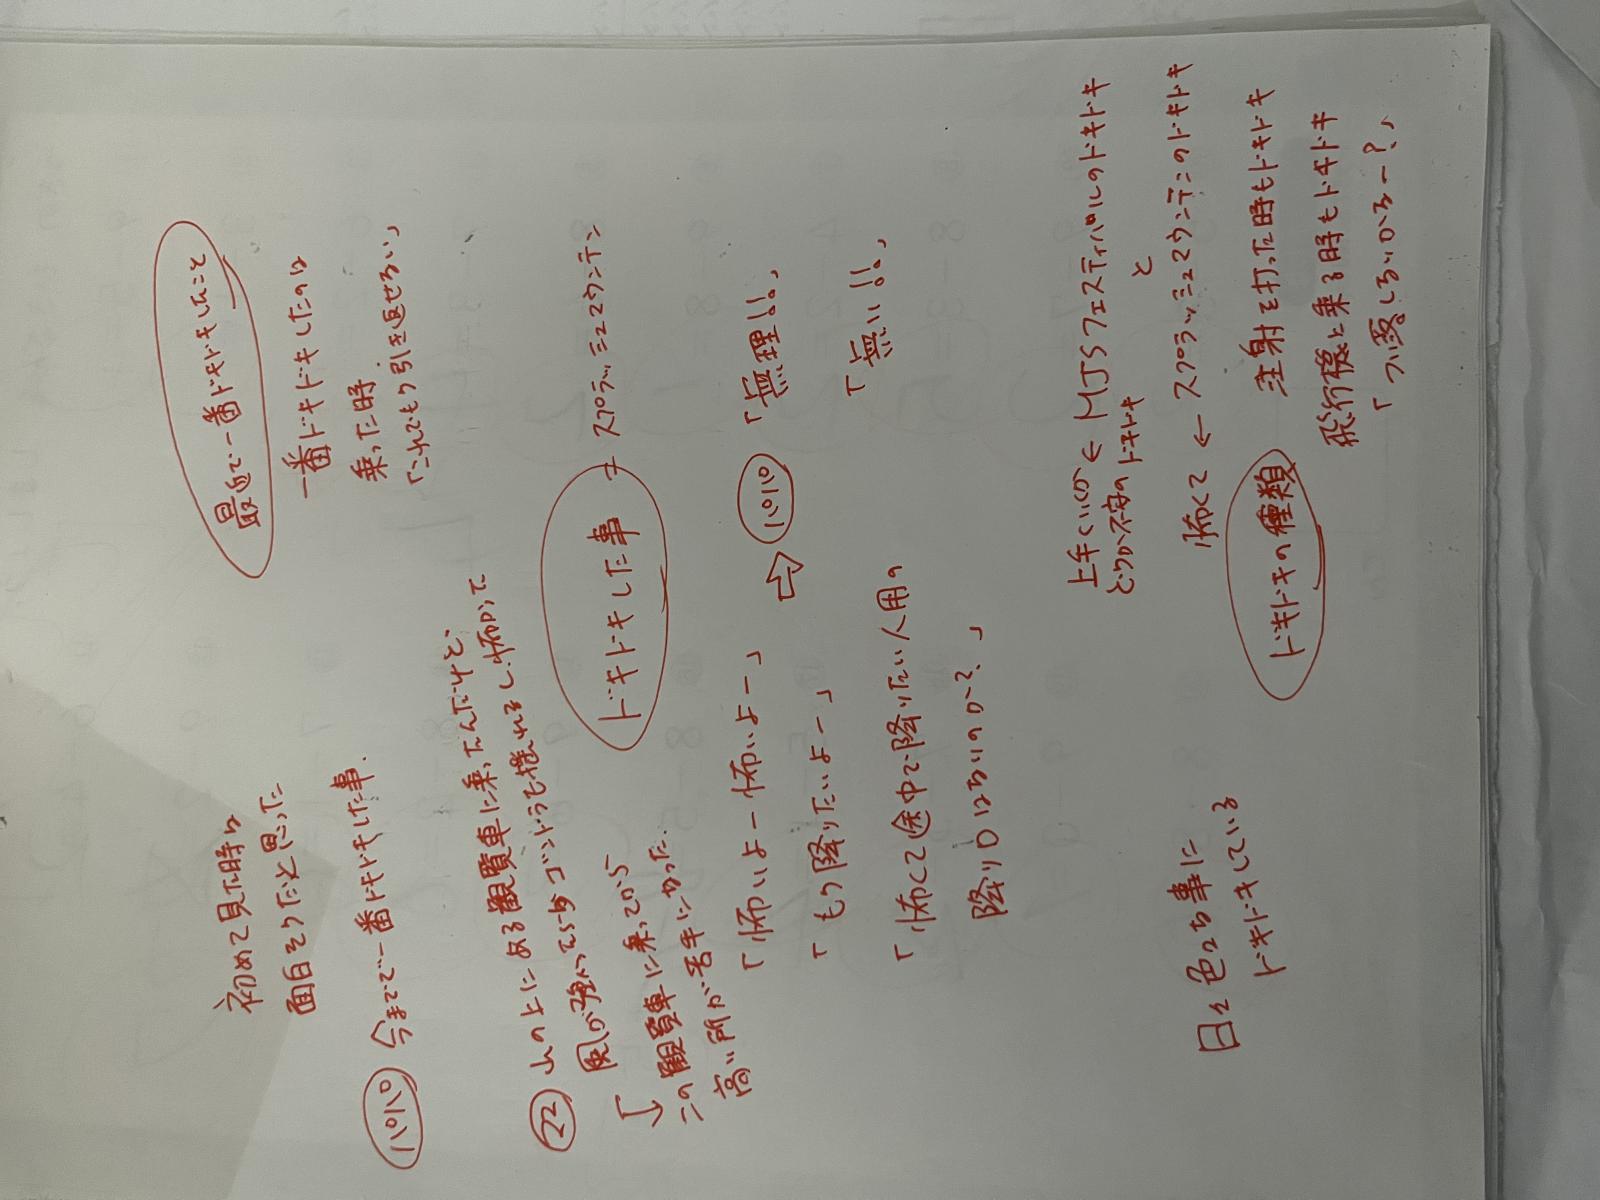 最近で一番ドキドキしたこと
一番ドキドキしたのは
乗った時
「これでもう引き返せない」
初めて見た時は
面白そうだと思った
パパ
今までで一番ドキドキした事.
ドキドキした事
スプラッシュマウンテン
22
山の上にある観覧車に乗ったんだけど、
風が強くて ゴンドラも揺れるし、怖かって
この観覧車に乗ってから
高い所が苦手になった.
「怖いよー怖いよー」
「もう降りたいよー」
「怖くて途中で降りたい人用の
降り口はないのか?」
⇨ パパ
「無理!!」
「無い!!」
ドキドキの種類
上手くいくか ← MJSフェスティバルのドキドキ
どうか不安のドキドキ
と
怖くて ← スプラッシュマウンテンのドキドキ
注射を打った時もドキドキ
飛行機に乗る時もドキドキ
「つい落しないかなー?」
日々色々な事に
ドキドキしている